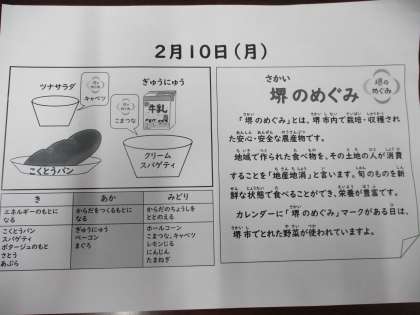 2月10日(月)
ツナサラダ
堺の
めぐみ
キャベツ
ぎゅうにゅう
堺の
めぐみ
こまつな
牛乳
こくとうパン
クリーム
スパゲティ
き
あか
みどり
エネルギーのもとに
なる
からだをつくるもとに
なる
からだのちょうしを
ととのえる
こくとうパン
スパゲティ
ポタージュのもと
さとう
あぶら
ぎゅうにゅう
ベーコン
まぐろ
ホールコーン
こまつな、キャベツ
レモンじる
にんじん
たまねぎ
さかい
堺のめぐみ
堺の
めぐみ
「堺のめぐみ」とは、堺市内で栽培・収穫され
た安心・安全な農産物です。
地域で作られた食べ物を、その土地の人が消費
することを「地産地消」と言います。旬のものを新
鮮な状態で食べることができ、栄養が豊富です。
カレンダーに「堺のめぐみ」マークがある日は、
堺市でとれた野菜が使われていますよ。